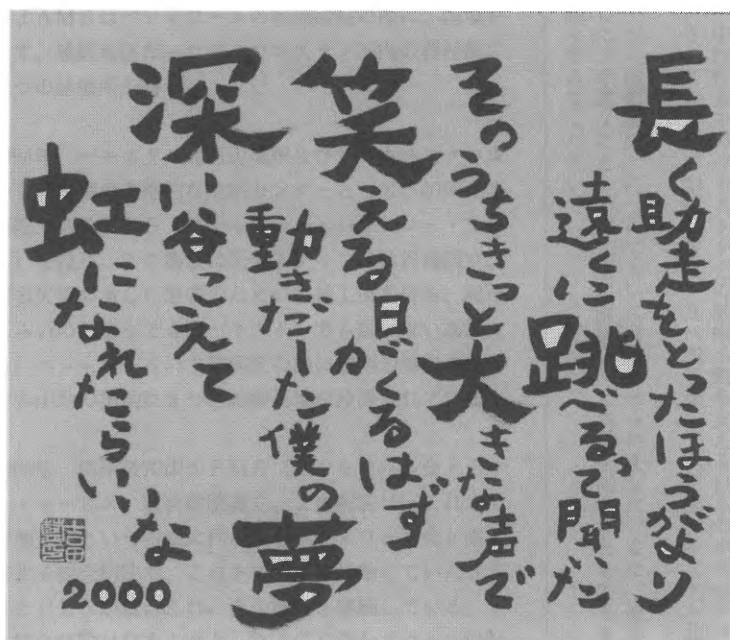 長く助走をとったほうがより
遠くに跳べるって聞いた
そのうちきっと大きな声で
笑える日がくるはず
動きだした僕の夢
深ーい谷こえて
虹になれたらいいな
2000